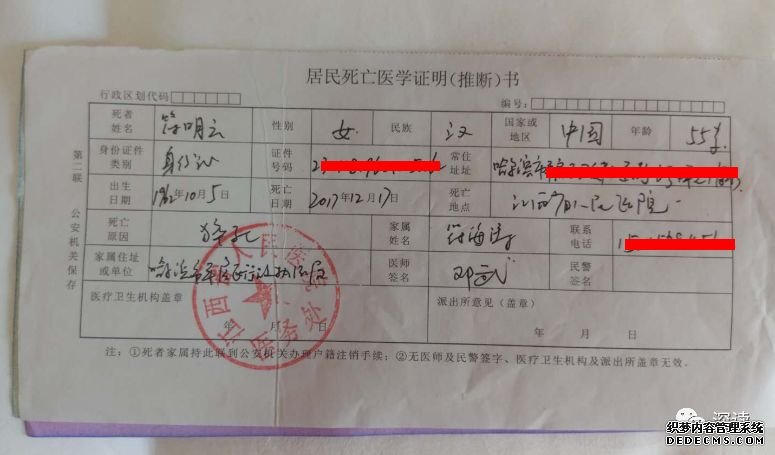 居民死亡医学证明(推断)书
行政区划代码 编号:
死者姓名 符明云 性别 女 民族 汉 国家或地区 中国 年龄 55岁
身份证件类别 身份证 证件号码 常住地址 哈尔滨市
出生日期 1962年10月5日 死亡日期 2017年12月17日 死亡地点 江西省人民医院
死亡原因 猝死 家属姓名 符海涛 联系电话
家属住址或单位 哈尔滨市 医师签名 邓武 民警签名
医疗卫生机构盖章 派出所意见(盖章)
年 月 日 年 月 日
注:①死者家属持此联到公安机关办理户籍注销手续;②无医师及民警签字、医疗卫生机构及派出所盖章无效。
第二联 公安机关保存
江西省人民医院医务处
深读
织梦内容管理系统
DEDECMS.COM